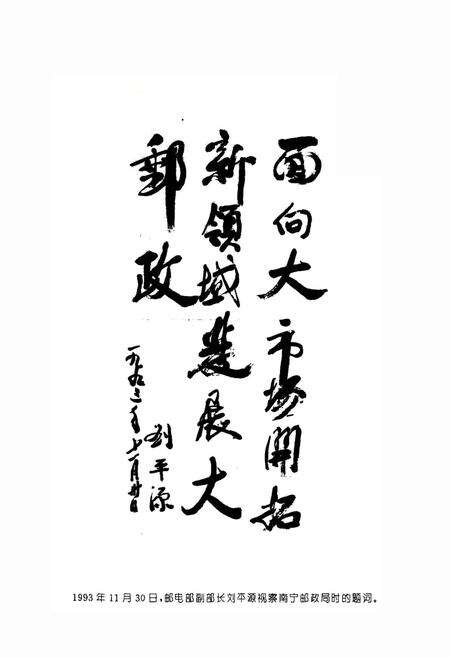 面向大市场開拓
新領域發展大
郵政
劉平源
一九九三年十一月卅日
1993年11月30日,邮电部副部长刘平源视察南宁邮政局时的题词。